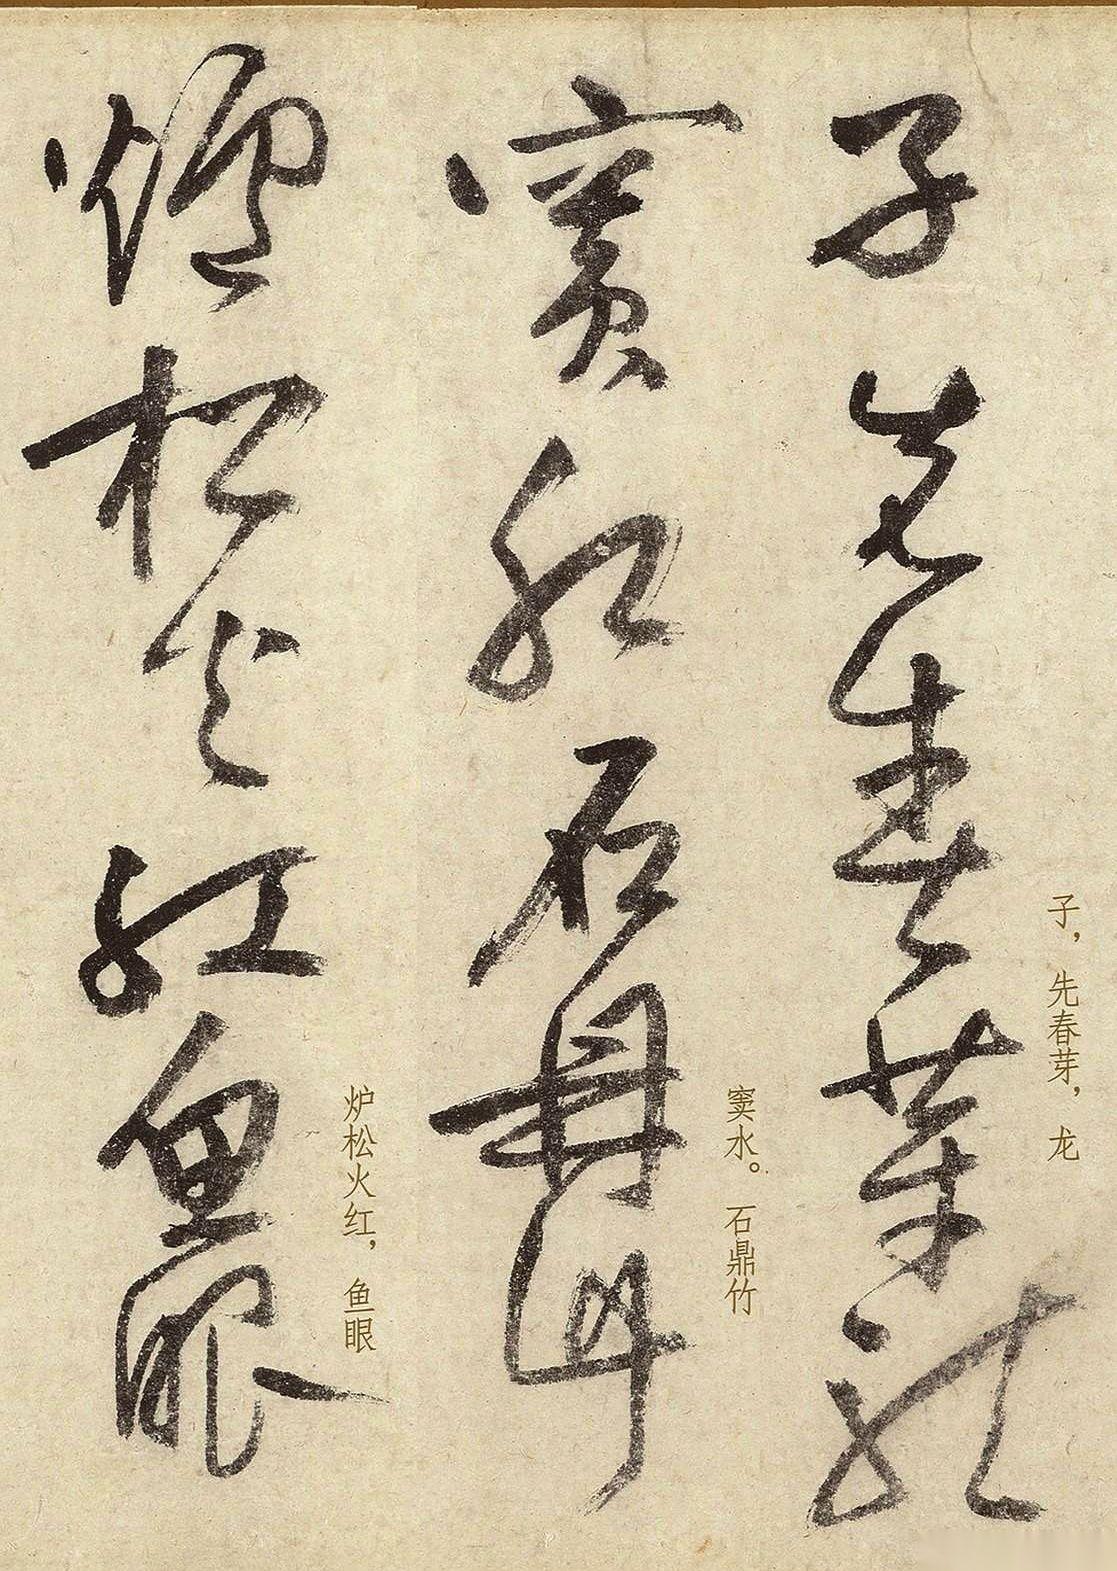 子，先春芽，龙
子先春芽龍
窦水。石鼎竹
竇水石鼎竹
炉松火红，鱼眼
爐松火紅魚眼